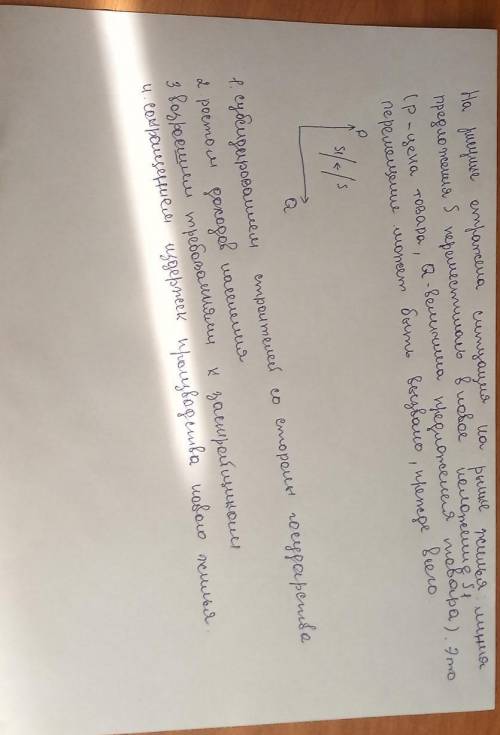 На рисунке отражена ситуация на рынке жилья: линия
предложения S переместилась в новое положение S1
(P-цена товара, Q-величина предложения товара). Это
перемещение может быть вызвано, прежде всего
P
S/←/S
Q
1. субсидированием строителей со стороны государства
2 ростом доходов населения
3 возросшими требованиями к застройщикам
4. сокращением издержек производства нового жилья.